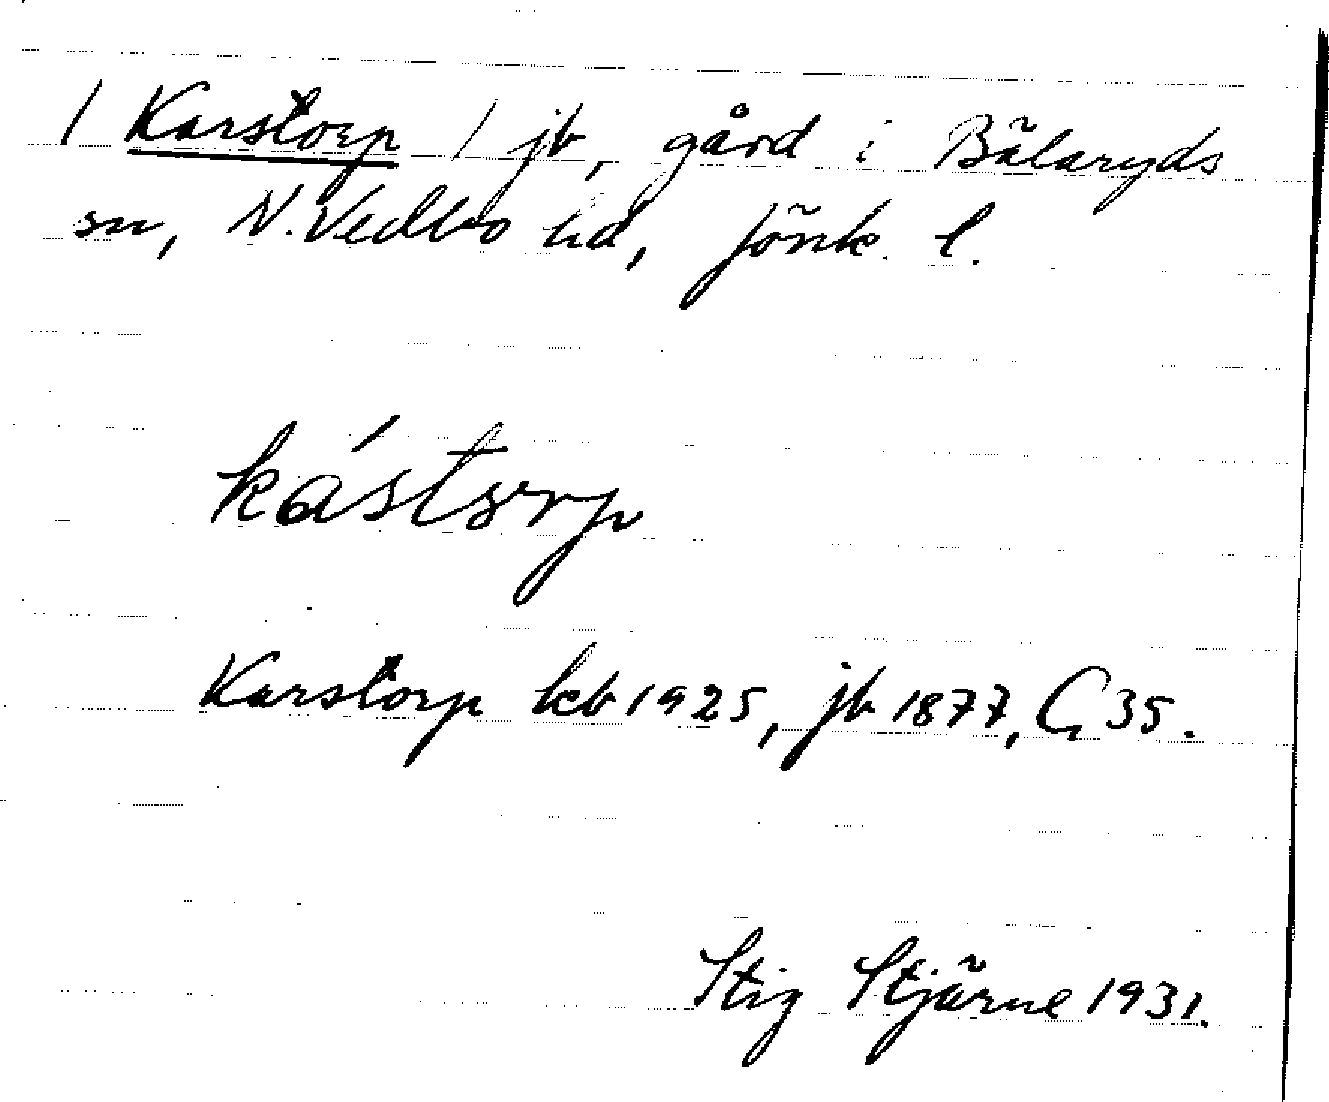 / Karstorp / jb, gård i Bälaryds
sn, N. Vedbo hd, Jönk. l.
kástorp
Karstorp kb 1925, jb 1877, G 35.
Stig Stjärne 1931.